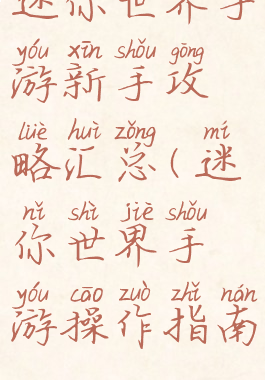 迷你世界手
yóu xīn shǒu gōng
游新手攻
lüè huì zǒng mí
略汇总(迷
nǐ shì jiè shǒu
你世界手
yóu cāo zuò zhǐ nán
游操作指南